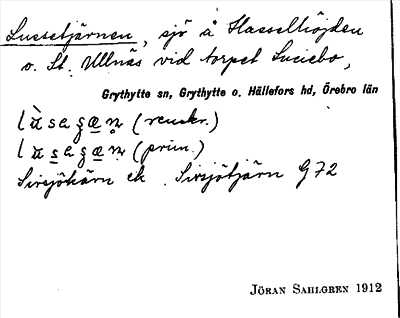 Lussetjärnen, sjö å Hasselhöjden
o. St. Ullnäs vid torpet Luciebo,
Grythytte sn, Grythytte o. Hällefors hd, Örebro län
(renskr.)
(prim.)
Sirsjökärn ek. Sirsjötjärn G72
JÖRAN SAHLGREN 1912